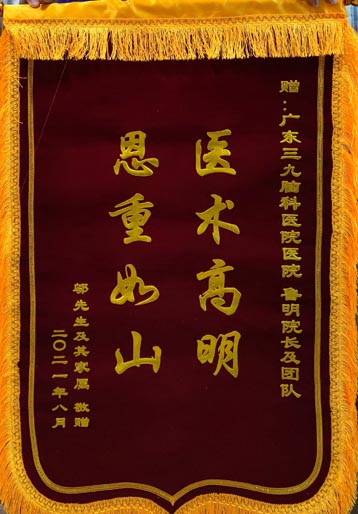 赠：广东三九脑科医院医院 鲁明院长及团队
医术高明
恩重如山
邬先生及其家属 敬赠
二〇二一年八月